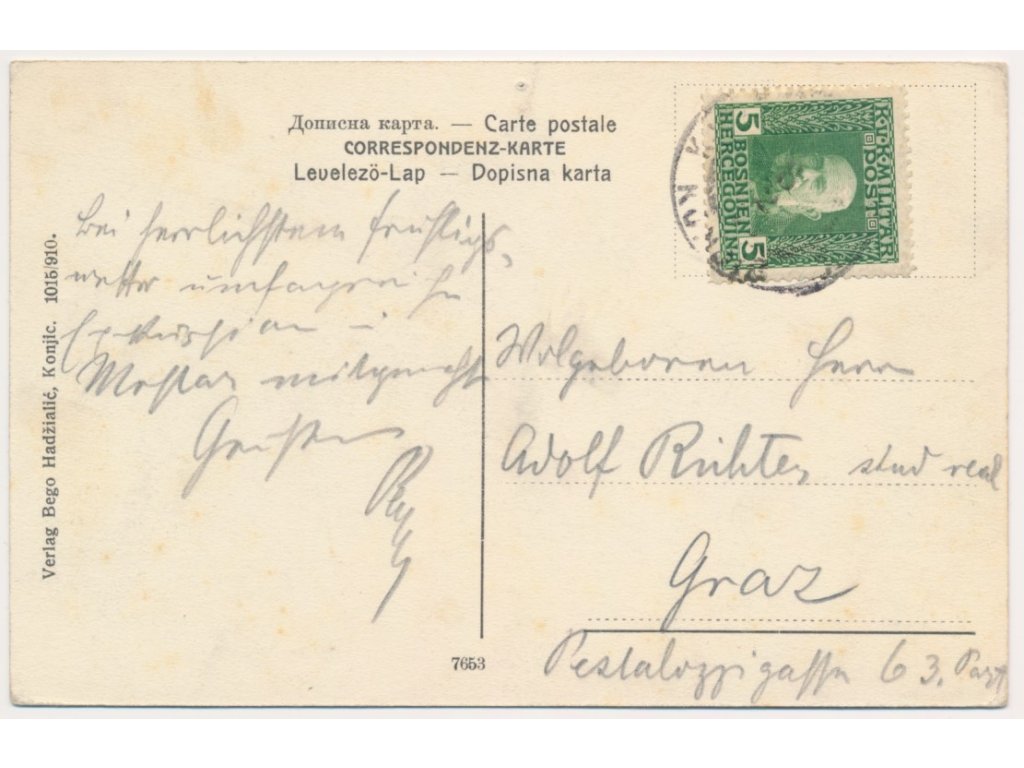 Дописна карта. — Carte postale
CORRESPONDENZ-KARTE
Levelező-Lap — Dopisna karta
K.u.K. MILITÄR POST
BOSNIEN HERCEGOVINA
5 5
Bei herrlichstem Frühlings-
wetter umfangreiche
Exkursion i
Mostar mitgemacht
Wolgeboren Herrn
Adolf Richter, stud real
Graz
Pestalozzigasse 63. Part
Verlag Bego Hadžialić, Konjic. 1015/910.
7653